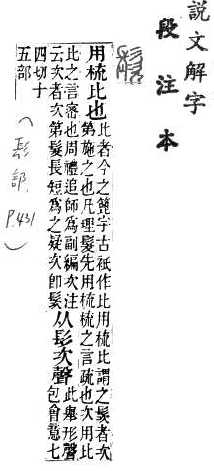 說文解字
段注本
用梳比也比者今之篦字古祇作比用梳比謂之䯸者次
第施之也凡理髮先用梳梳之言疏也次用比
比之言密也周禮追師為副編次注
云次者次第髮長短為之疑次即䯸从髟次聲此舉形聲
包會意七
四切十
五部
(髟部 P.431)